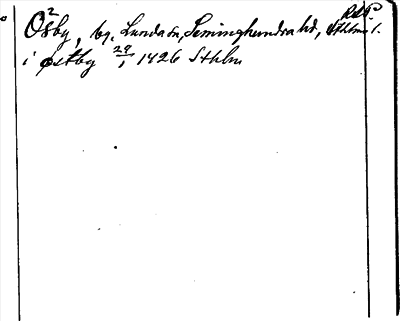 RAP.
Osby², by, Lunda sn, Seminghundra hd, Sthlms l.
i østby 29/1 1426 Sthlm